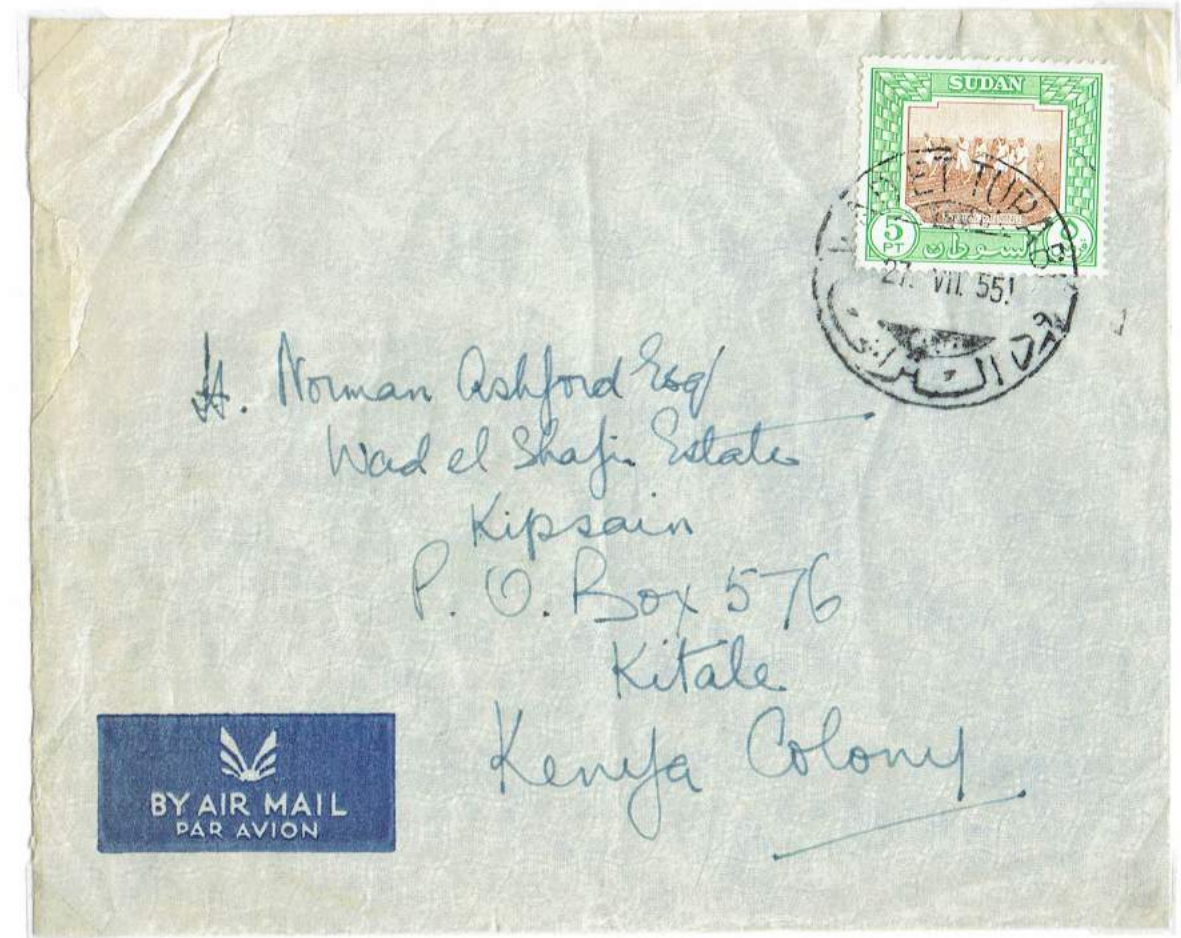 SUDAN
5
PT
السودان
TURAB
27. VII. 55
Norman Ashford Esq
Wad el Shafi. Estate
Kipsain
P. O. Box 576
Kitale
Kenya Colony
BY AIR MAIL
PAR AVION